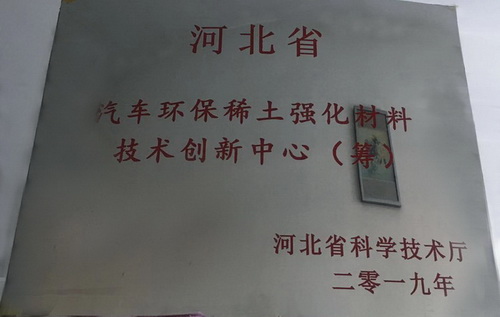 河北省
汽车环保稀土强化材料
技术创新中心（筹）
河北省科学技术厅
二零一九年